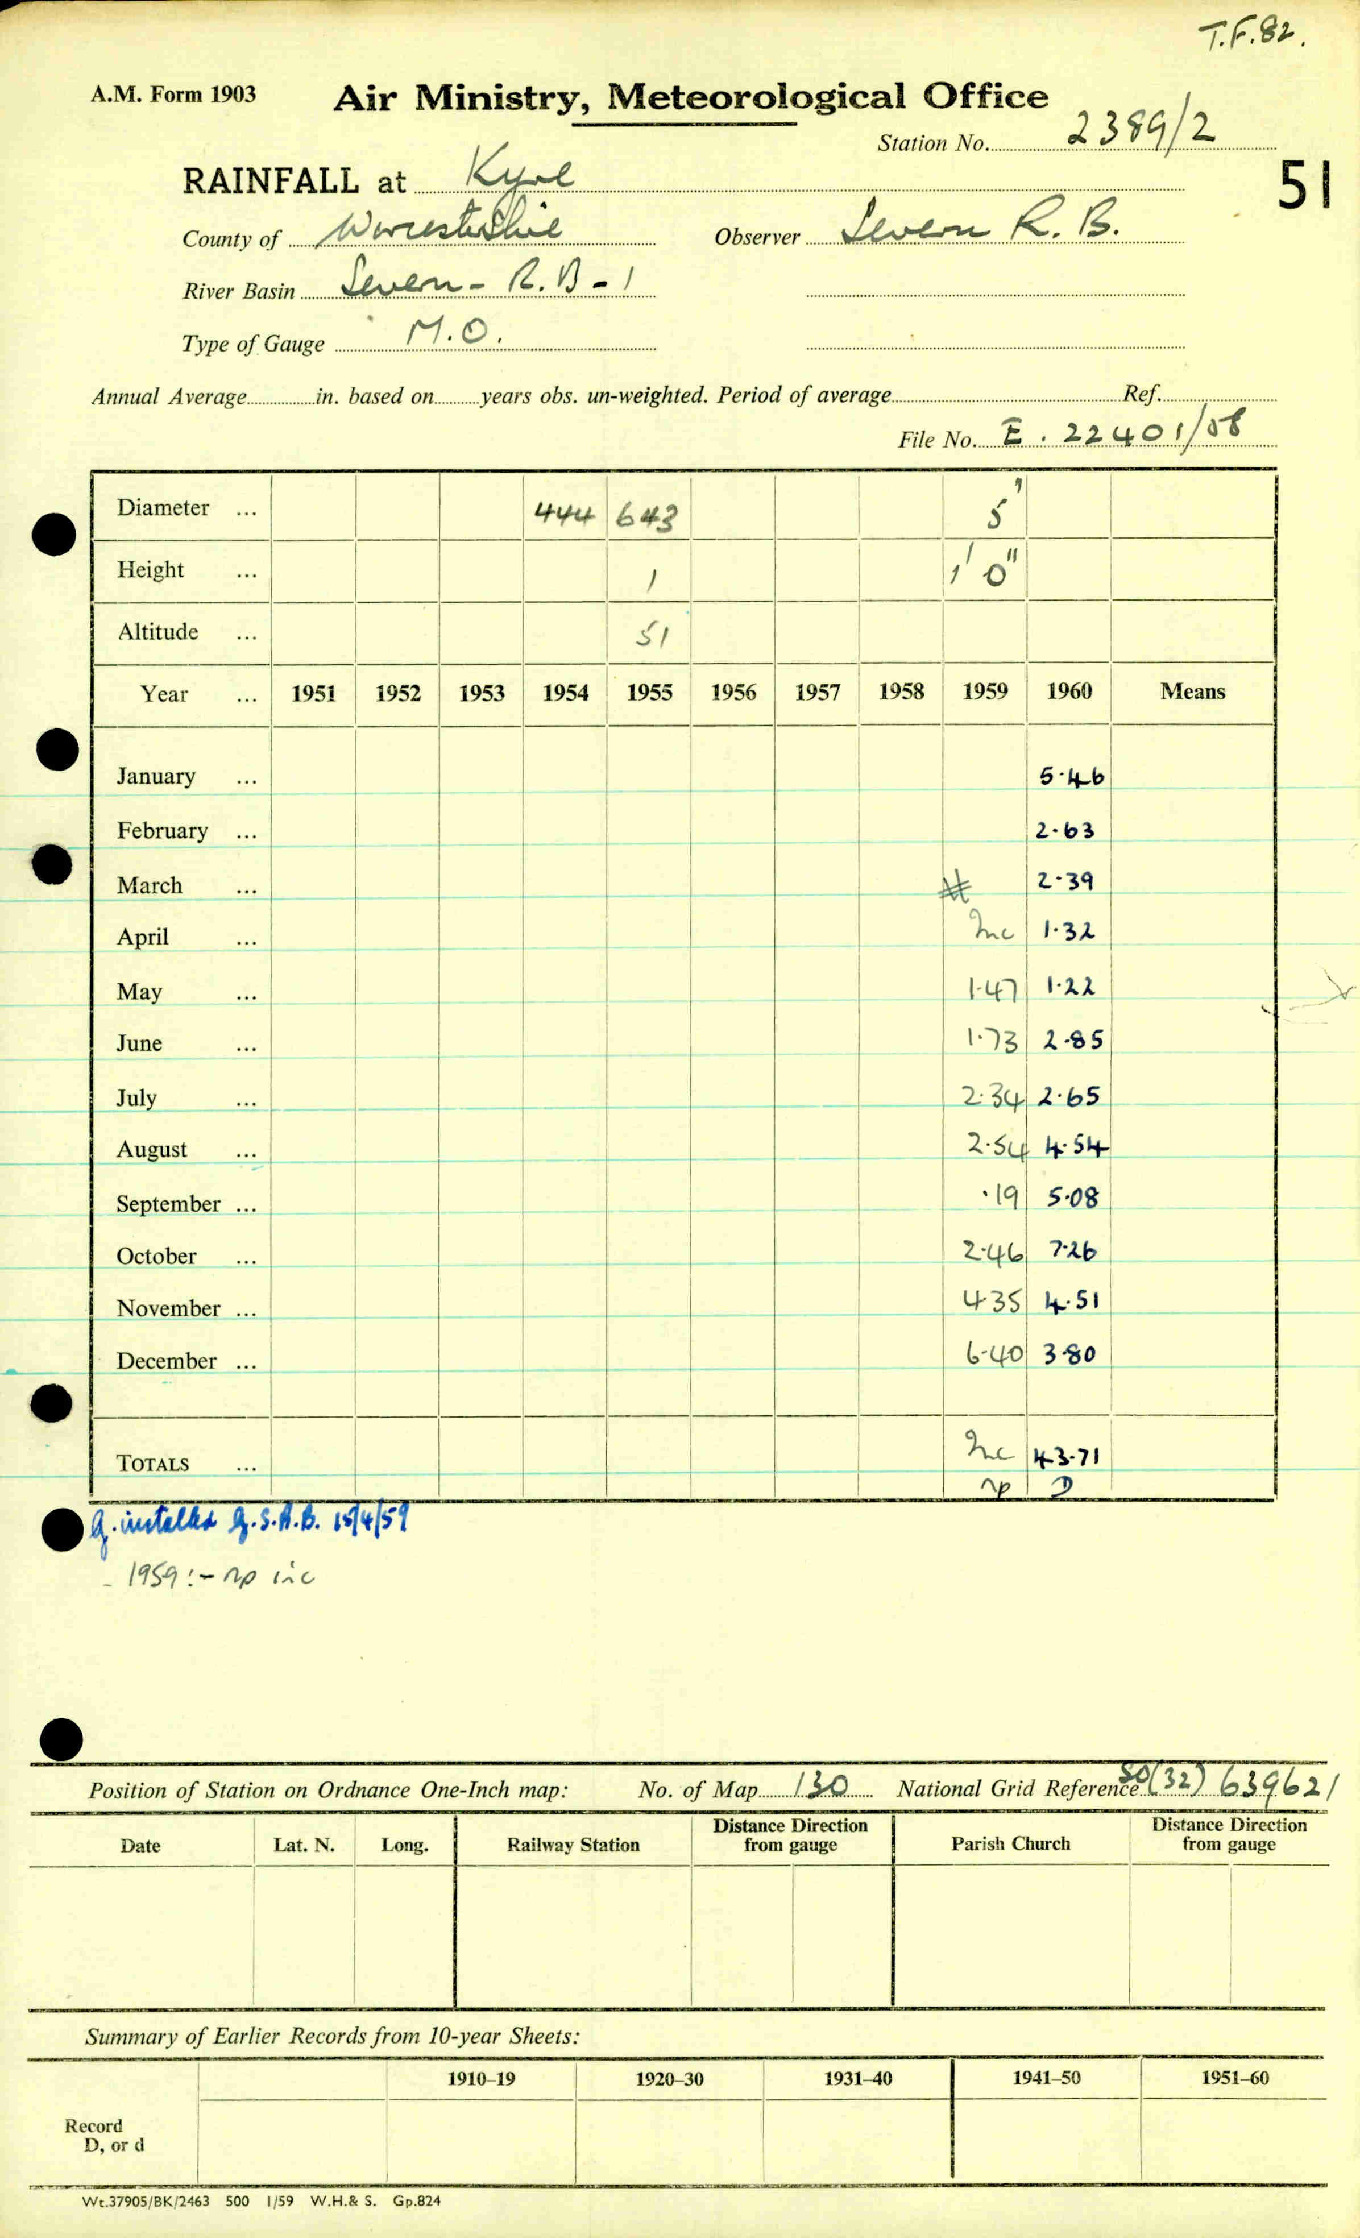 T.F.82.
A.M. Form 1903 Air Ministry, Meteorological Office
Station No. 2389/2
RAINFALL at Kyre 51
County of Worcestershire Observer Severn R. B.
River Basin Severn - R. B - 1
Type of Gauge M.O.
Annual Average in. based on years obs. un-weighted. Period of average Ref.
File No. E. 22401/58
Diameter ... 444 643 5"
Height ... 1 1' 0"
Altitude ... 51
Year ... 1951 1952 1953 1954 1955 1956 1957 1958 1959 1960 Means
January ... 5.46
February ... 2.63
March ... # 2.39
April ... Inc 1.32
May ... 1.47 1.22
June ... 1.73 2.85
July ... 2.34 2.65
August ... 2.54 4.54
September ... .19 5.08
October ... 2.46 7.26
November ... 4.35 4.51
December ... 6.40 3.80
TOTALS ... Inc 43.71
np D
G. installed 15/4/59
1959 :- np inc
Position of Station on Ordnance One-Inch map: No. of Map 130 National Grid Reference SO(32) 639621
Date Lat. N. Long. Railway Station Distance Direction from gauge Parish Church Distance Direction from gauge
Summary of Earlier Records from 10-year Sheets:
1910–19 1920–30 1931–40 1941–50 1951–60
Record
D, or d
Wt.37905/BK/2463 500 1/59 W.H.& S. Gp.824